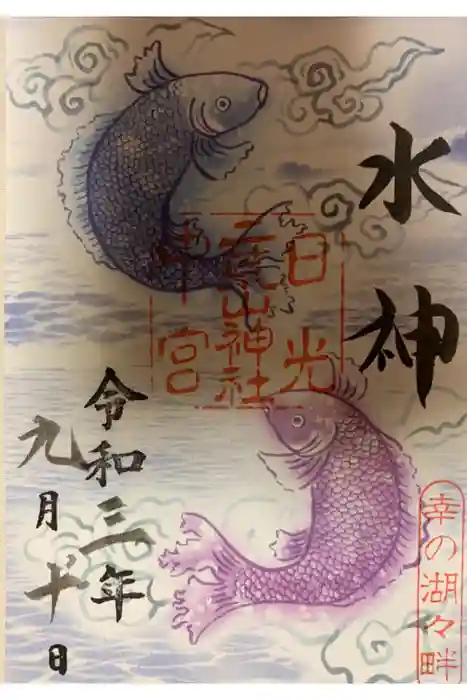 水神
日光
二荒山神社
中宮
幸の湖々畔
令和三年
九月十日